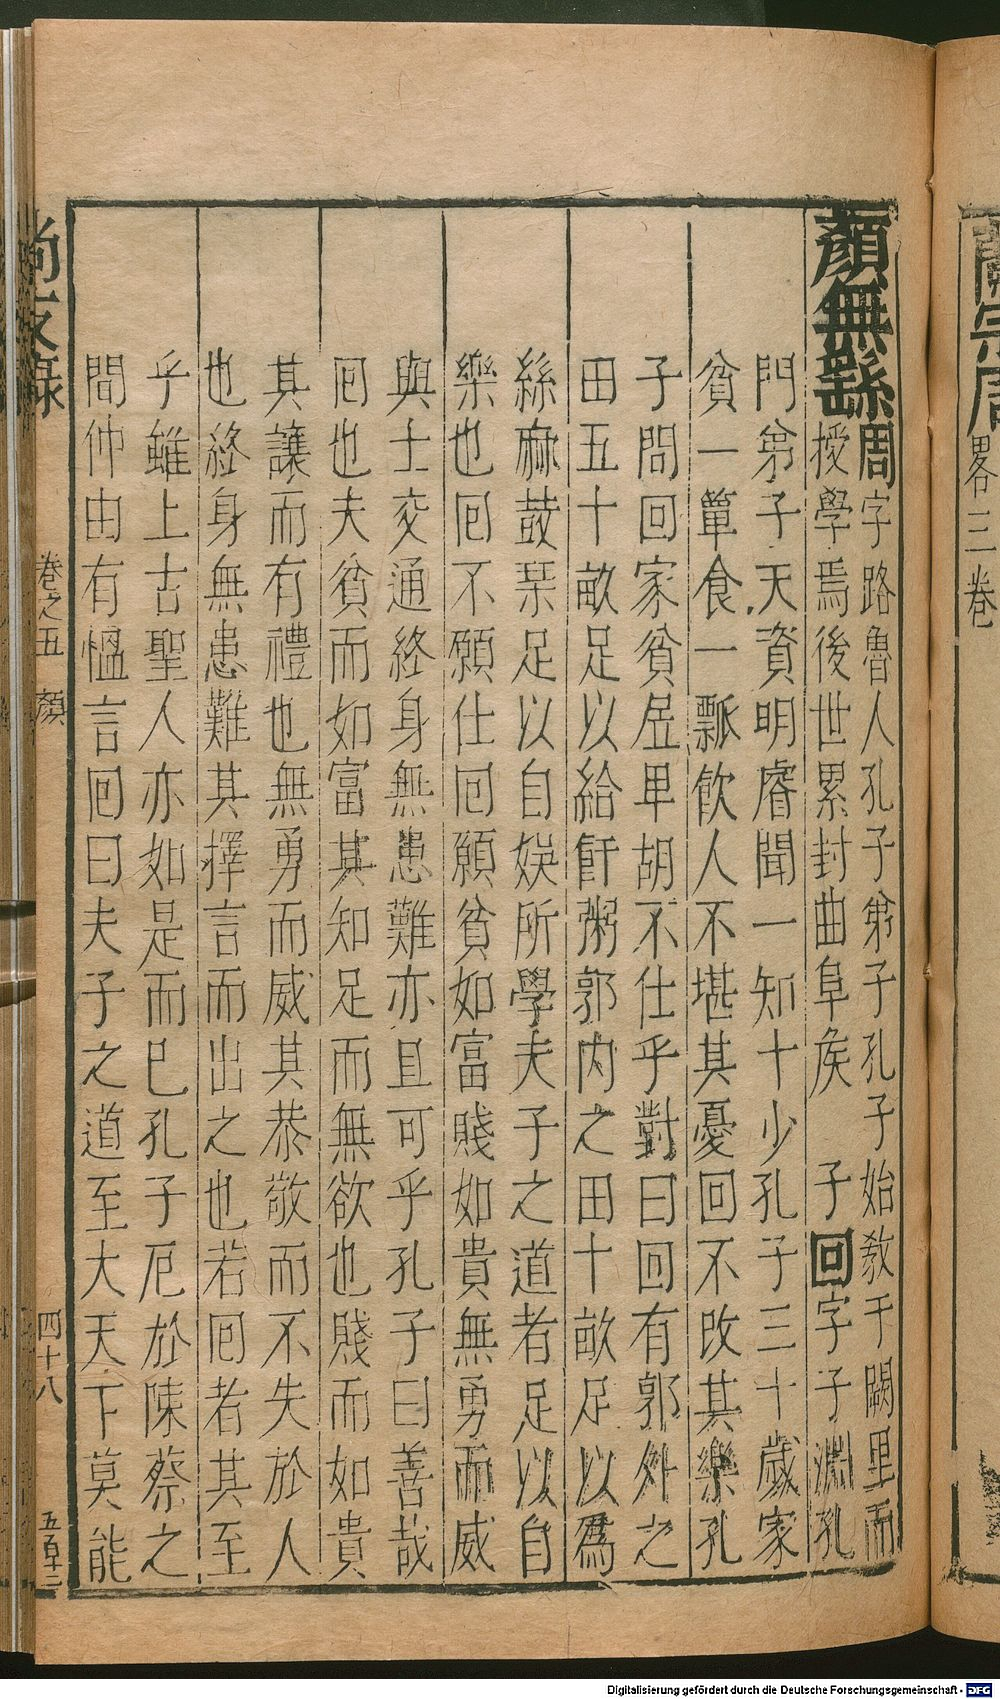 顏無繇周字路魯人孔子弟子孔子始教于闕里而
授學焉後世累封曲阜矦 子回字子淵孔
門弟子天資明睿聞一知十少孔子三十歲家
貧一簞食一瓢飲人不堪其憂回不改其樂孔
子問回家貧居卑胡不仕乎對曰回有郭外之
田五十畝足以給飦粥郭内之田十畝足以爲
絲麻鼓琹足以自娛所學夫子之道者足以自
樂也囘不願仕囘願貧如富賤如貴無勇而威
與士交通終身無患難亦且可乎孔子曰善哉
囘也夫貧而如富其知足而無欲也賤而如貴
其讓而有禮也無勇而威其恭敬而不失於人
也終身無患難其擇言而出之也若囘者其至
乎雖上古聖人亦如是而巳孔子厄於陳蔡之
間仲由有慍言囘曰夫子之道至大天下莫能
尚友錄 卷之五 顏 四十八 五百十三
畧三卷
Digitalisierung gefördert durch die Deutsche Forschungsgemeinschaft - DFG